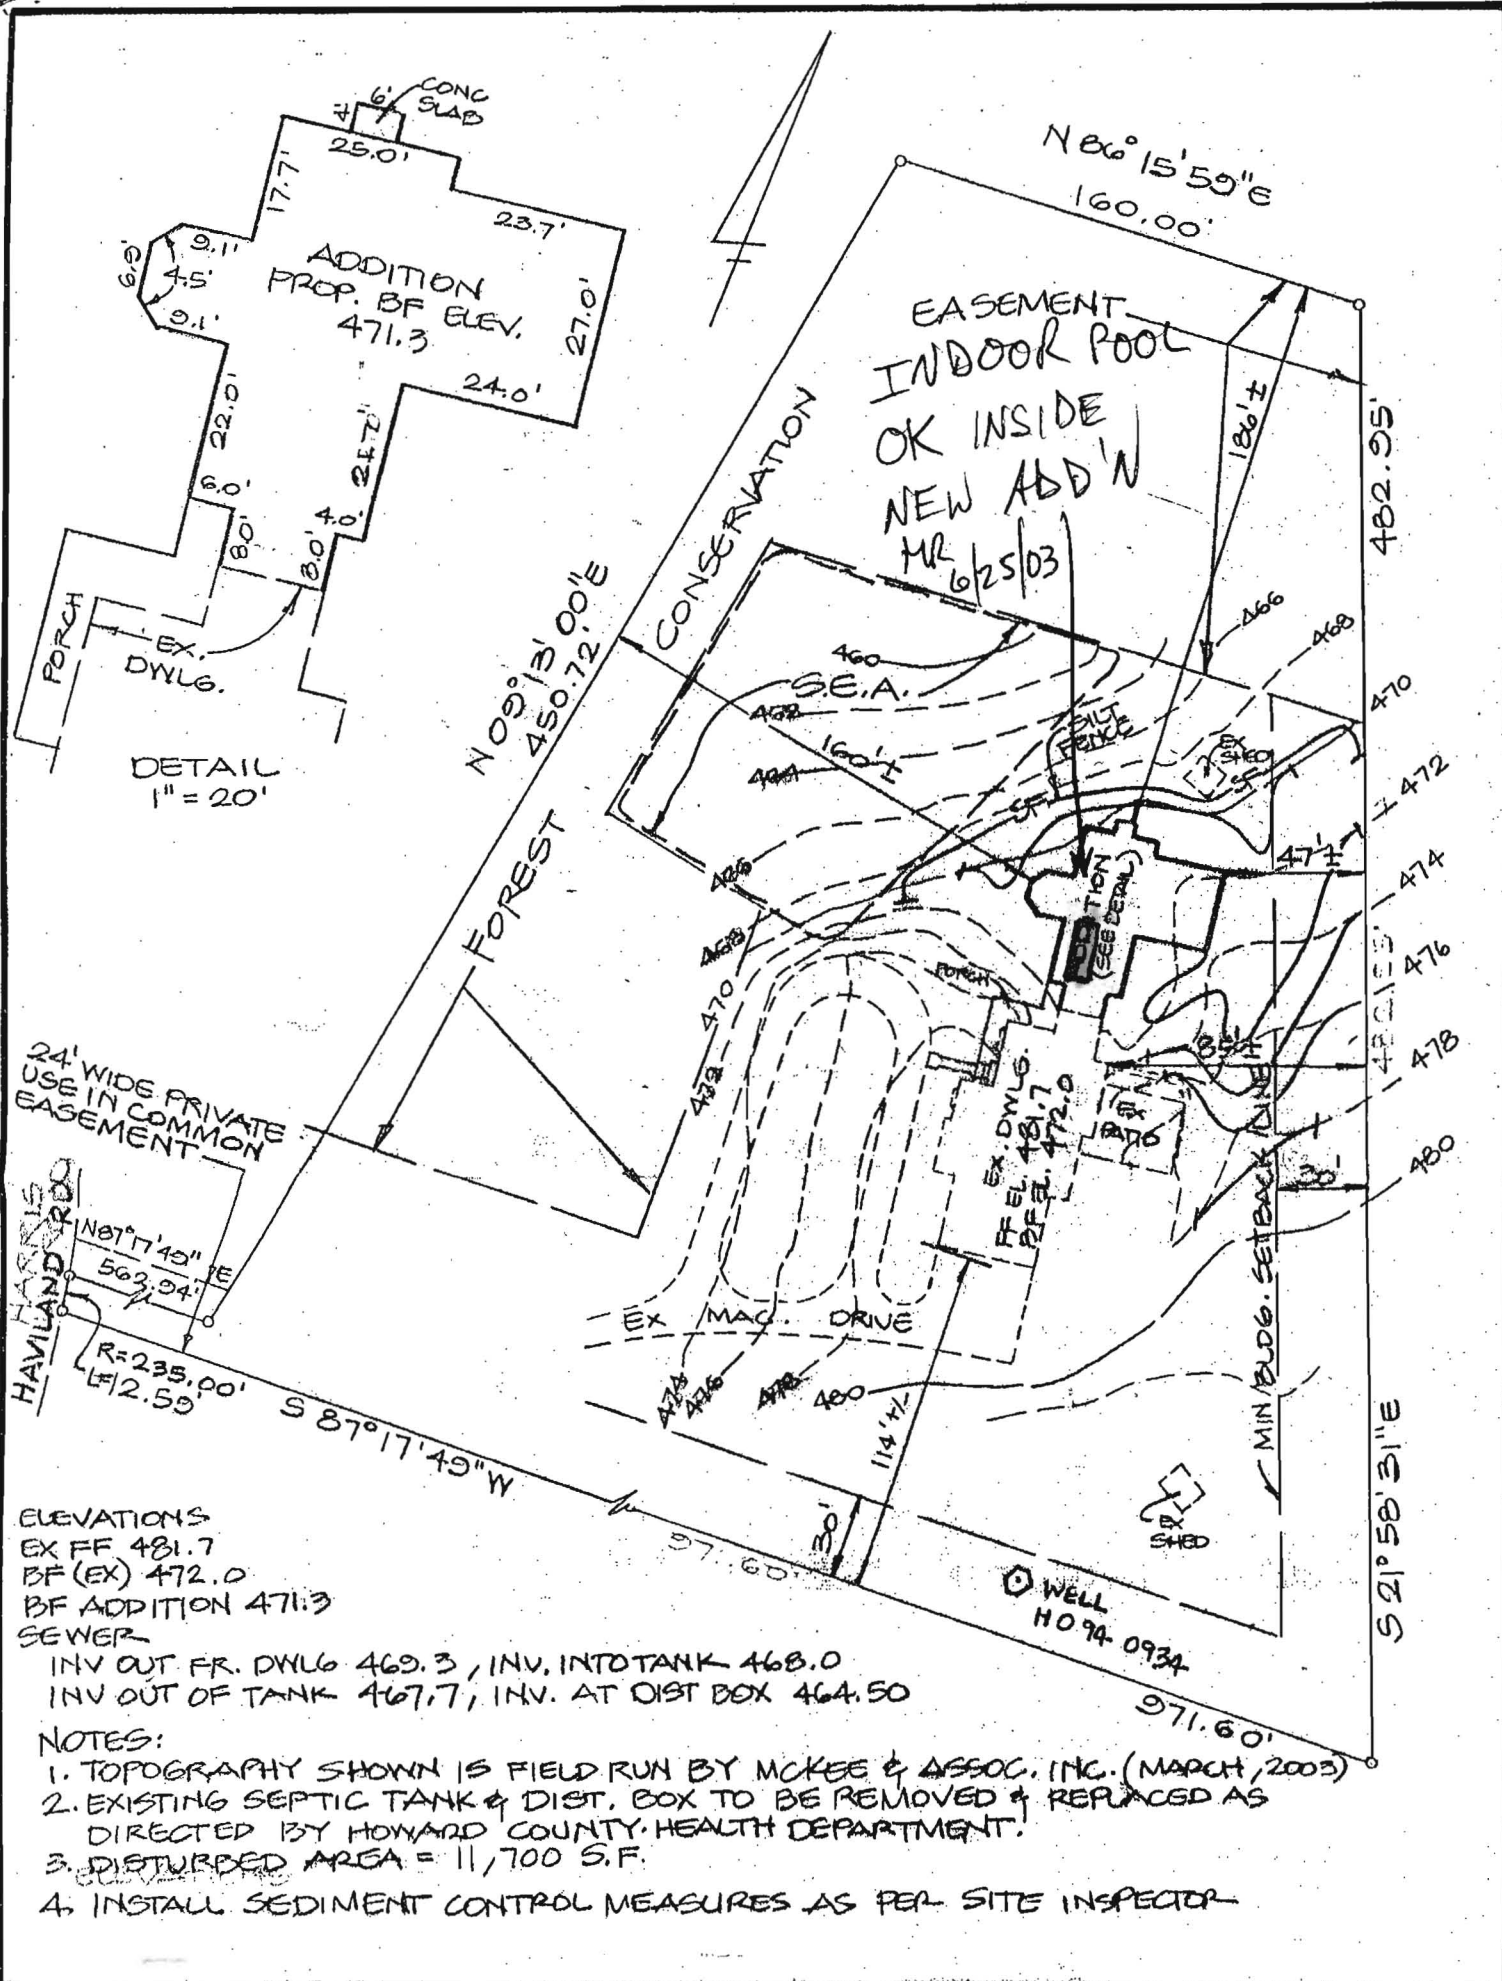 CONC
SLAB
6'
4'
25.0'
17.7'
23.7'
9.1'
6.9'
4.5'
9.1'
ADDITION
PROP. BF ELEV.
471.3
27.0'
24.0'
22.0'
21.0'
6.0'
8.0'
4.0'
8.0'
PORCH
EX.
DWLG.
DETAIL
1" = 20'
N 86° 15' 59" E
160.00'
EASEMENT
INDOOR POOL
OK INSIDE
NEW ADD'N
MR
6/25/03
186'±
482.95'
CONSERVATION
N 09° 13' 00" E
450.72'
FOREST
460
S.E.A.
462
464
160'±
466
468
470
472
SILT
FENCE
EX
SHED
SF
SF
466
468
470
472
474
476
478
480
47'±
(SEE DETAIL)
PORCH
85'±
EX. DWLG.
FF EL. 481.7
BF EL. 472.0
EX
PATIO
30'
MIN BLDG. SETBACK LINE
24' WIDE PRIVATE
USE IN COMMON
EASEMENT
HARRIS
HAVILAND
N87°17'49"E
563.94'
R=235.00'
L=12.59'
S 87°17'49" W
EX MAC. DRIVE
474
476
478
480
114'+/-
30'
971.60'
EX
SHED
WELL
HO 94 0934
971.60'
S 21° 58' 31" E
ELEVATIONS
EX FF 481.7
BF (EX) 472.0
BF ADDITION 471.3
SEWER
INV OUT FR. DWLG 469.3, INV. INTO TANK 468.0
INV OUT OF TANK 467.7, INV. AT DIST BOX 464.50
NOTES:
1. TOPOGRAPHY SHOWN IS FIELD RUN BY MCKEE & ASSOC. INC. (MARCH, 2003)
2. EXISTING SEPTIC TANK & DIST. BOX TO BE REMOVED & REPLACED AS
DIRECTED BY HOWARD COUNTY HEALTH DEPARTMENT.
3. DISTURBED AREA = 11,700 S.F.
4. INSTALL SEDIMENT CONTROL MEASURES AS PER SITE INSPECTOR